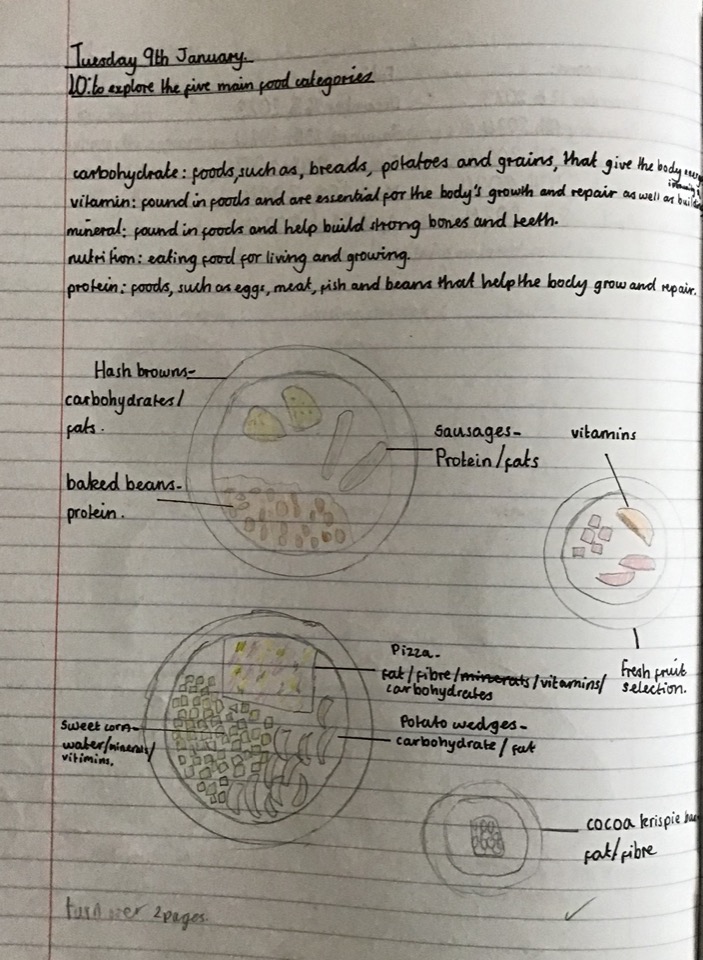 Tuesday 9th January.
LO: to explore the five main food categories
carbohydrate: foods, such as, breads, potatoes and grains, that give the body
vitamin: found in foods and are essential for the body's growth and repair as well as
mineral: found in foods and help build strong bones and teeth.
nutrition: eating food for living and growing.
protein: foods, such as eggs, meat, fish and beans that help the body grow and repair.
Hash browns-
carbohydrates/
fats.
sausages-
Protein/fats
vitamins
baked beans-
protein.
Pizza-
fat/fibre/minerals/vitamins/
carbohydrates
fresh fruit
selection.
sweet corn-
water/minerals/
vitimins.
Potato wedges-
carbohydrate/fat
cocoa krispie
fat/fibre
turn over 2 pages.